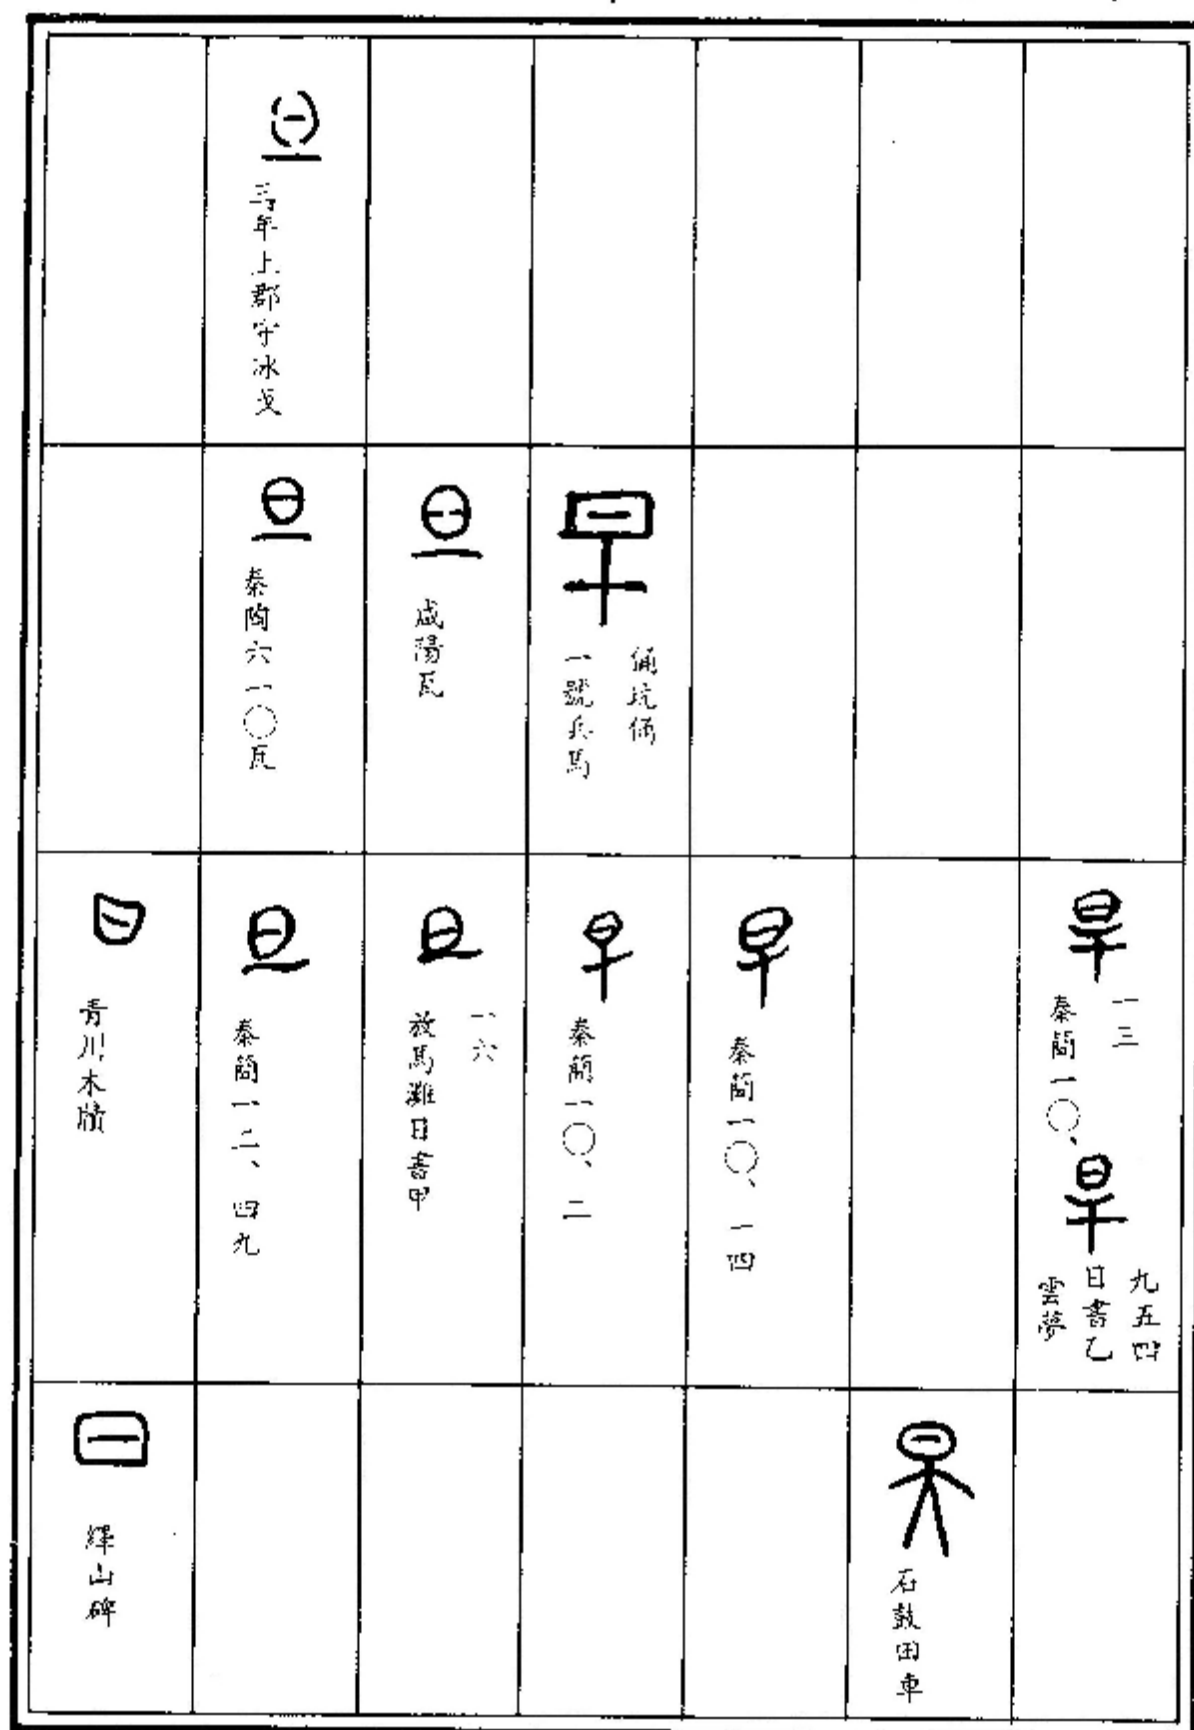 旦
年上郡守冰戈
旦
秦陶六一〇瓦
旦
咸陽瓦
早
一號兵馬
俑坑俑
日
青川木牘
旦
秦簡一二、四九
旦
放馬灘日書甲
一六
早
秦簡一〇、二
早
秦簡一〇、一四
旱
秦簡一〇、
一三
旱
雲夢
日書乙
九五四
日
繹山碑
昊
石鼓田車